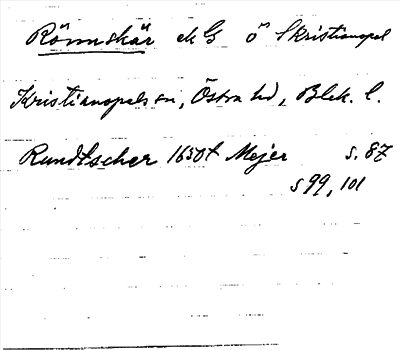 Rönnskär ek G ö Kristianopel
Kristianopels sn, Östra hd, Blek. l.
Rundtscher 1650t Mejer s. 87
s 99, 101